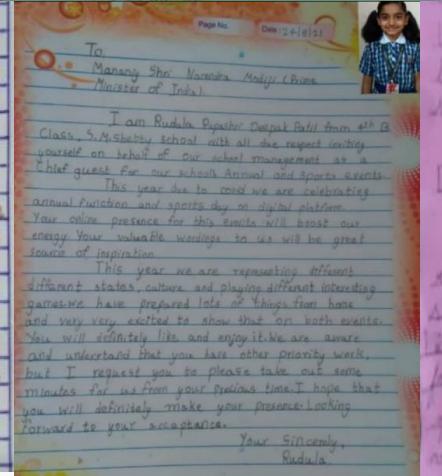 Page No.
Date: 24/8/21
To,
Manany Shri Narendra Modiji (Prime
Minister of India).
I am Rudula Rupashri Deepak Patil from 4th B
Class, S.M.Shetty school with all due respect inviting
yourself on behalf of our school management as a
Chief guest for our schools Annual and Sports events.
This year due to covid we are celebrating
annual function and sports day on digital platform.
Your online presence for this events will boost our
energy. Your valuable wordings to us will be great
source of inspiration
This year we are representing different
different states, culture and playing different interesting
games. We have prepared lots of things from home
and very very excited to show that on both events.
You will definitely like and enjoy it. We are aware
and understand that you have other priority work,
but I request you to please take out some
minutes for us from your precious time. I hope that
you will definitely make your presence. Looking
forward to your acceptance.
Your Sincerely,
Rudula